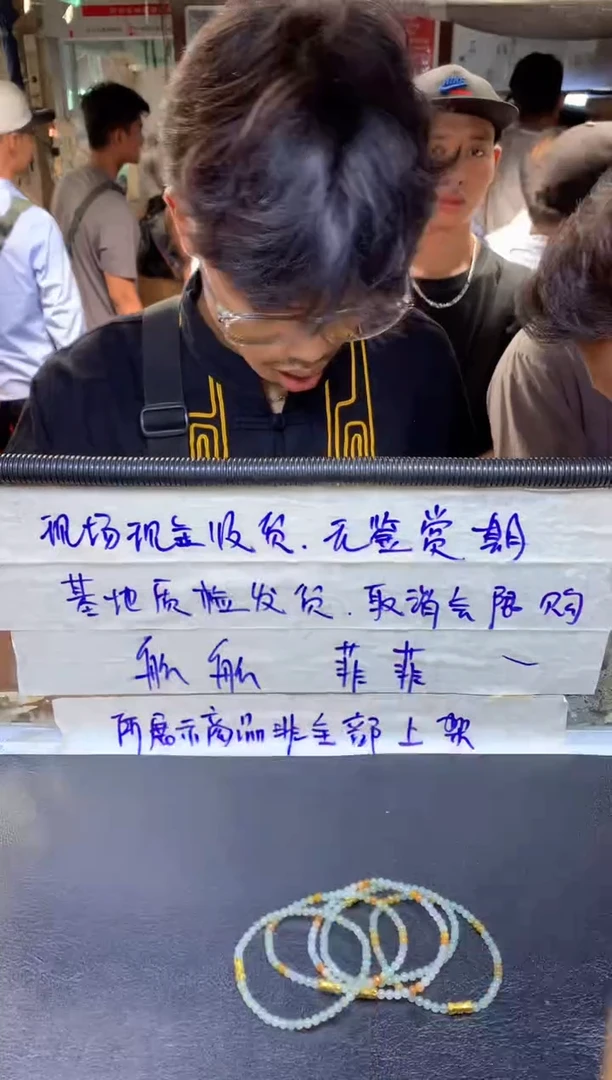 现场现金收货.无鉴赏期
基地质检发货.取消会限购
船船 菲菲
所展示商品非全部上架